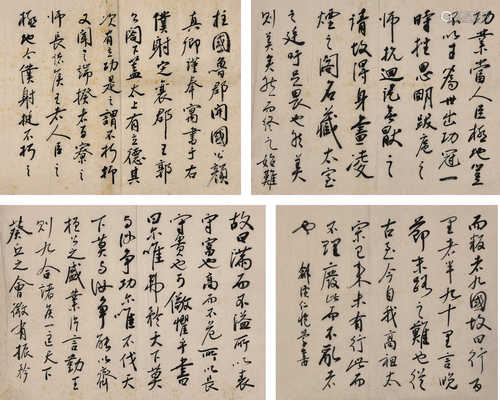 柱國魯郡開國公顏
真卿謹奉寓書于右
僕射定襄郡王郭
公閣下蓋太上有立德其
次有立功是之謂不朽抑
又聞之端揆者百寮之
師長諸侯王者人臣之
極地今僕射挺不朽之
功業當人臣極地豈
不以才為世出功冠一
時挫思明跋扈之
師抗迴紇無猒之
請故得身畫凌
煙之閣名藏太室
之廷吁足畏也然美
則美矣然而終之始難
故曰滿而不溢所以長
守富也高而不危所以長
守貴也可儆懼乎書
曰尔唯弗矜天下莫
与汝争功尔唯不伐天
下莫与汝争能以齊
桓公之盛業片言勤王
則九合諸侯一匡天下
葵丘之會微有振矜
而叛者九國故曰行百
里者半九十里言晚
節末路之難也從
古至今自我高祖太
宗已來未有行此而
不理廢此而不亂者
也